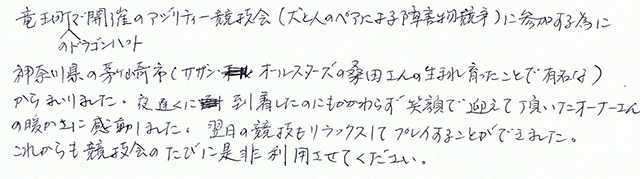 竜王町で開催のアジリティー競技会(犬と人のペアによる障害物競争)に参加する為に
のドラゴンハット
神奈川県の茅ヶ崎市(サザンオールスターズの桑田さんの生まれ育ったことで有名な)
からまいりました。夜遅くに到着したのにもかかわらず笑顔で迎えて頂いたオーナーさん
の暖かさに感動しました。翌日の競技もリラックスしてプレイすることができました。
これからも競技会のたびに是非利用させてください。